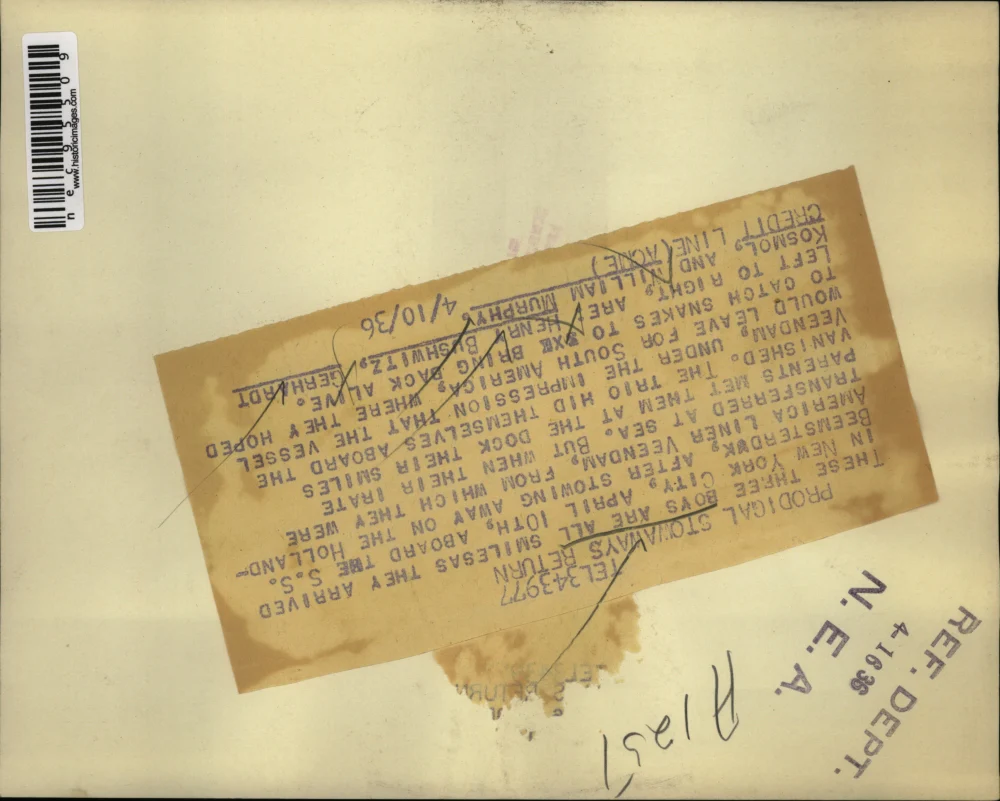 TEL343977
PRODIGAL STOWAWAYS RETURN
THESE THREE BOYS ARE ALL SMILESAS THEY ARRIVED
IN NEW YORK CITY, APRIL 10TH, ABOARD THE S.S.
BEEMSTERDYK, AFTER STOWING AWAY ON THE HOLLAND-
AMERICA LINER VEENDAM, FROM WHICH THEY WERE
TRANSFERRED AT SEA. BUT, WHEN THEIR IRATE
PARENTS MET THEM AT THE DOCK THEIR SMILES
VANISHED. THE TRIO HID THEMSELVES ABOARD THE
VEENDAM, UNDER THE IMPRESSION THAT THE VESSEL
WOULD LEAVE FOR SOUTH AMERICA, WHERE THEY HOPED
TO CATCH SNAKES TO BRING BACK ALIVE.
LEFT TO RIGHT, ARE HENRY BUSHWITZ, GERHARDT
KOSMOL, AND WILLIAM MURPHY.
CREDIT LINE (ACME) 4/10/36
REF. DEPT.
4-16 36
N. E. A.
A1251
www.historicimages.com
nec95509